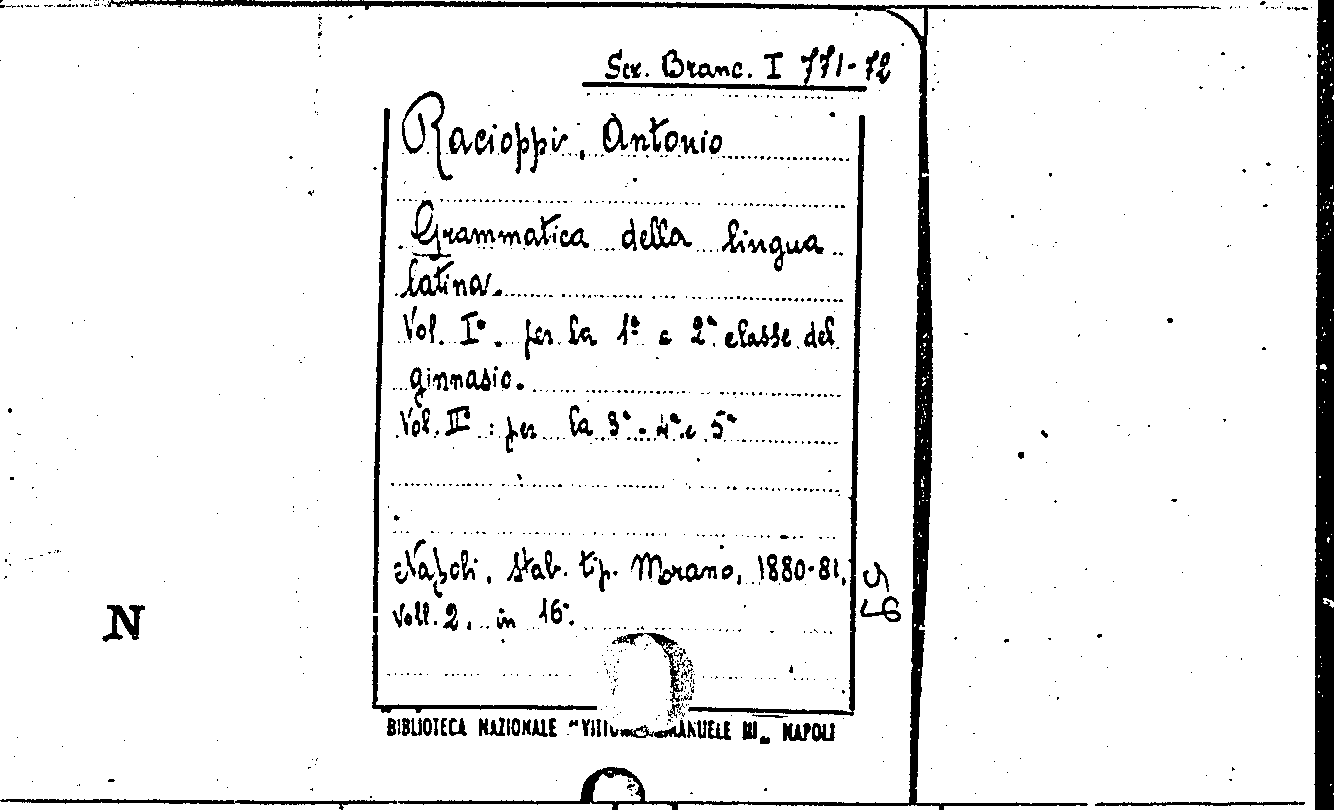 Scr. Branc. I 771-72
Racioppi, Antonio
Grammatica della lingua
latina.
Vol. I° . per la 1ª e 2ª classe del
ginnasio.
Vol. II° : per la 3ª - 4ª e 5ª
Napoli, Stab. tip. Morano, 1880-81,
Voll. 2, in 16°.
56
N
BIBLIOTECA NAZIONALE "VITTO EMANUELE III" NAPOLI